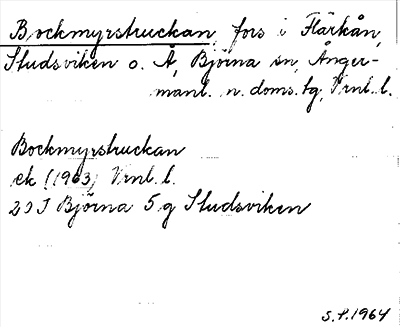 Bockmyrstruckan, fors i Flärkån,
Studsviken o. Å, Björna sn, Ånger-
manl. n. doms. tg, Vrnl. l.
Bockmyrstruckan
ek (1963) Vrnl. l.
20 I Björna 5 g Studsviken
S.P. 1964